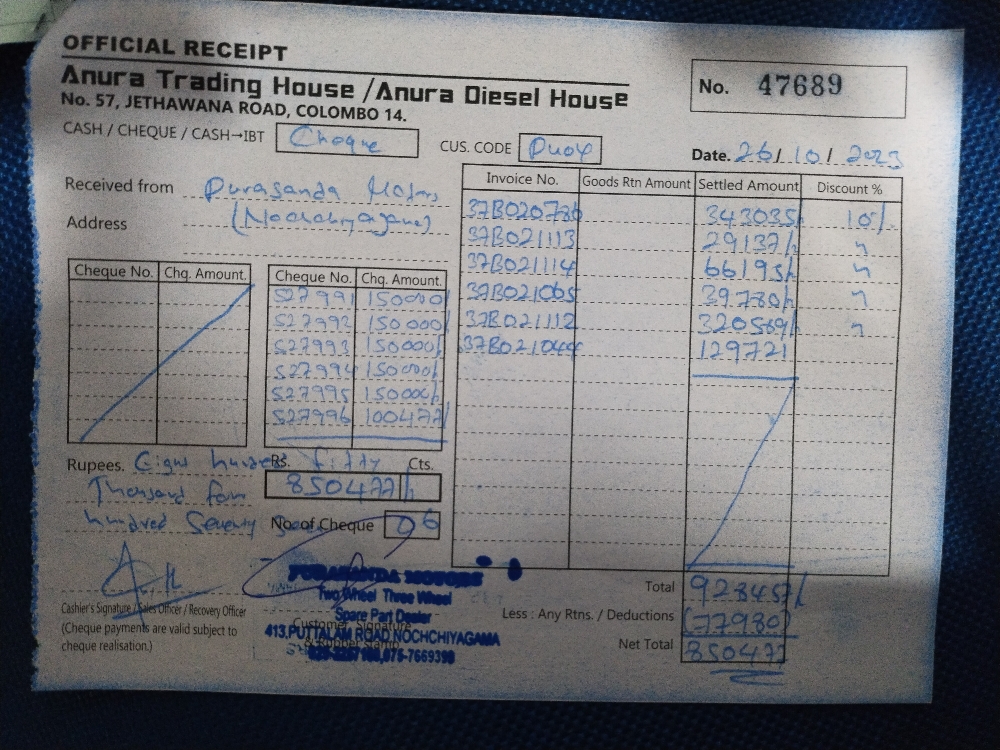 OFFICIAL RECEIPT
Anura Trading House /Anura Diesel House
No. 57, JETHAWANA ROAD, COLOMBO 14.
No. 47689
CASH / CHEQUE / CASH→IBT Cheque
CUS. CODE
Date. 26/10/2023
Received from Purasanda Motors
Address
Invoice No. Goods Rtn Amount Settled Amount Discount %
37B020786 343035/ 10%
37B021113 29137/ "
37B021114 66195/ "
37B021065 39780/ "
37B021112 320589/ "
37B021044 129721
Cheque No. Chq. Amount.
Cheque No. Chq. Amount.
527991 150000/
527992 150000/
527993 150000/
527994 150000/
527995 150000/
527996 100477/
Rupees. Eight hundred fifty
Thousand four
hundred Seventy
Rs. Cts.
850477/
No. of Cheque 06
Cashier's Signature / Sales Officer / Recovery Officer
(Cheque payments are valid subject to
cheque realisation.)
Customer Signature
& Rubber Stamp
PURASANDA MOTORS
Two Wheel Three Wheel
Spare Part Dealer
413,PUTTALAM ROAD,NOCHCHIYAGAMA
075-7669398
Total 928457/
Less : Any Rtns. / Deductions (77980)
Net Total 850477